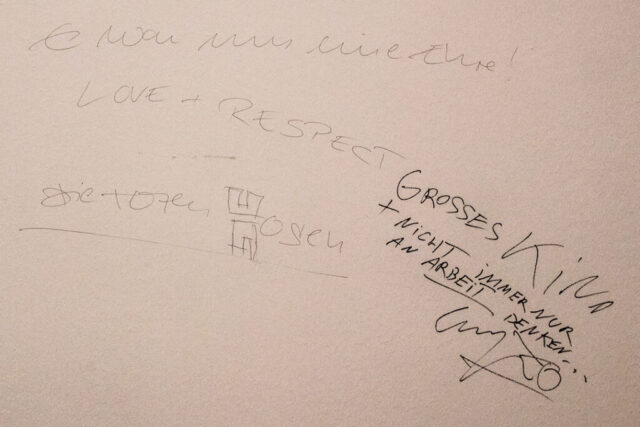 Es war uns eine Ehre!
LOVE + RESPECT
die toten Hosen
GROSSES KIND
+ NICHT IMMER NUR
AN ARBEIT DENKEN...